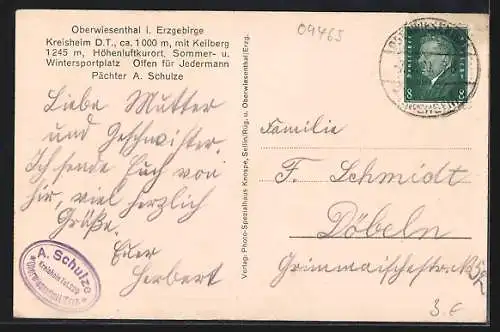 Oberwiesenthal i. Erzgebirge
Kreisheim D.T., ca. 1000 m, mit Keilberg
1245 m, Höhenluftkurort, Sommer- u.
Wintersportplatz Offen für Jedermann
Pächter A. Schulze
Liebe Mutter
und Geschwister.
Ich sende Euch von
hir, viel herzlich
Grüße.
Euer
Herbert
A. Schulze
Kreisheim
Oberwiesenthal
Verlag: Photo-Spezialhaus Knospe, Sellin/Rug. u. Oberwiesenthal/Erzg.
09465
8 8
Familie
F. Schmidt
Döbeln
Grimmaischestr.
3.€